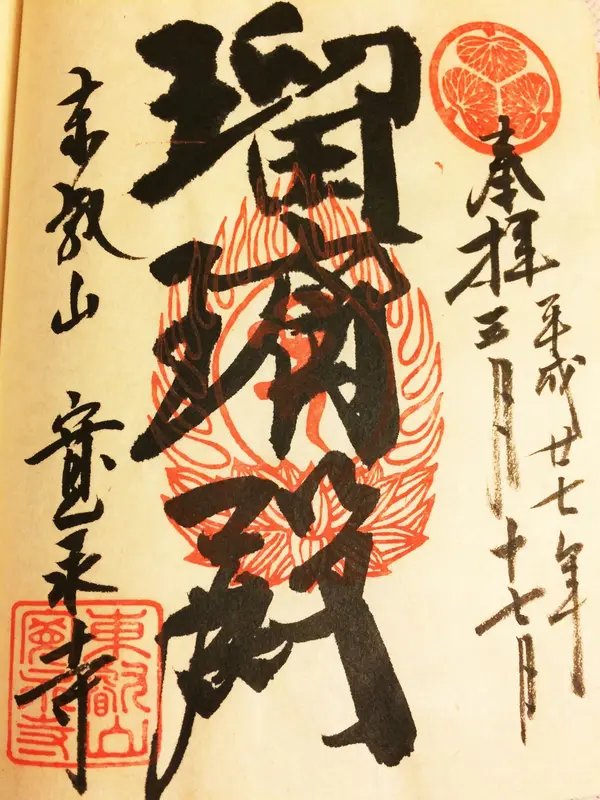 奉拝
平成廿七年
三月十七日
瑠璃殿
東叡山 寛永寺
東叡山
寛永寺